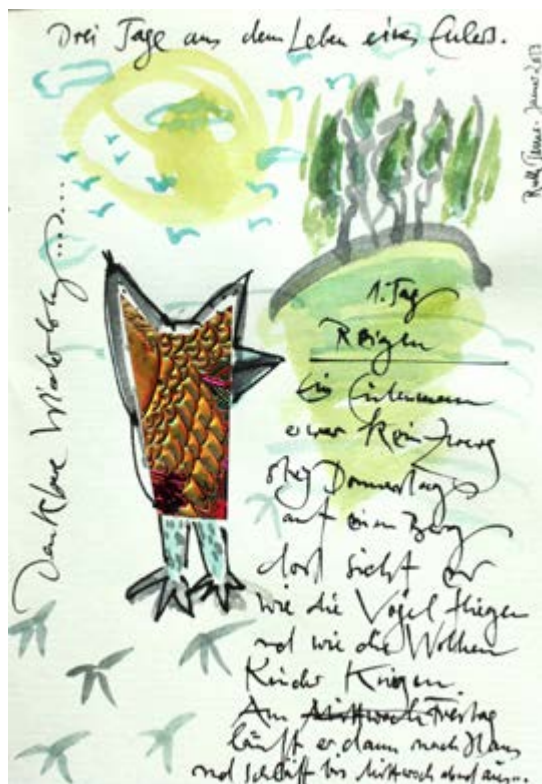 Drei Tage aus dem Leben eines Eules.
Januar 2013
Dankbare
1. Tag
Reigen
Ein Eulenmann
er war kein Zwerg
stieg Donnerstags
auf einen Berg
dort sieht er
wie die Vögel fliegen
und wie die Wolken
Kinder kriegen.
Am Mittwoch Freitag
läuft er dann nach Haus
und schläft bis Mittwoch